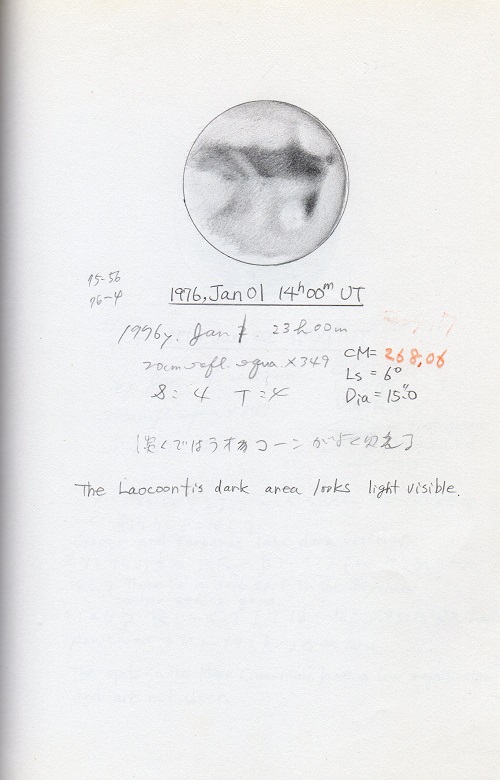 75-56
76-4
1976, Jan 01 14h00m UT
1996y. Jan 1. 23h00m
20cm refl. equa. ×349
S: 4 T: 4
CM= 268,06
Ls = 6°
Dia = 15".0
淡くではラオオコーンがよく見える
The Laocoontis dark area looks light visible.